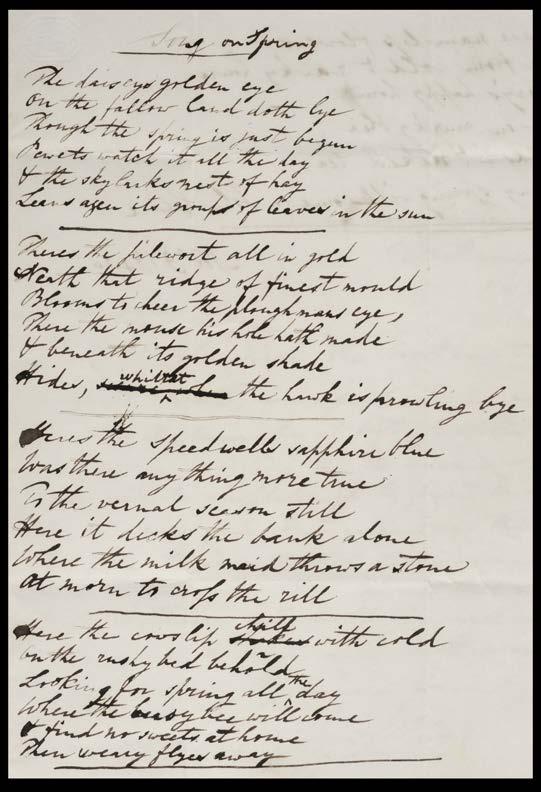 Song on Spring
The daiseys golden eye
On the fallow land doth lye
Though the spring is just begun
Pewets watch it all the day
& the skylarks nest of hay
Leans agen its groups of leaves in the sun
Theres the pilewort all in gold
Neath that ridge of finest mould
Blooms to cheer the ploughmans eye,
There the mouse his hole hath made
& beneath its golden shade
Hides, whilst the hawk is prowling bye
Heres the speedwells sapphire blue
Was there any thing more true
To the vernal season still
Here it decks the bank alone
Where the milk maid throws a stone
At morn to cross the rill
Here the cowslip chill with cold
On the rushy bed behold
Looking for spring all the day
Where the busy bee will come
& find no sweets at home
Then weary flyes away